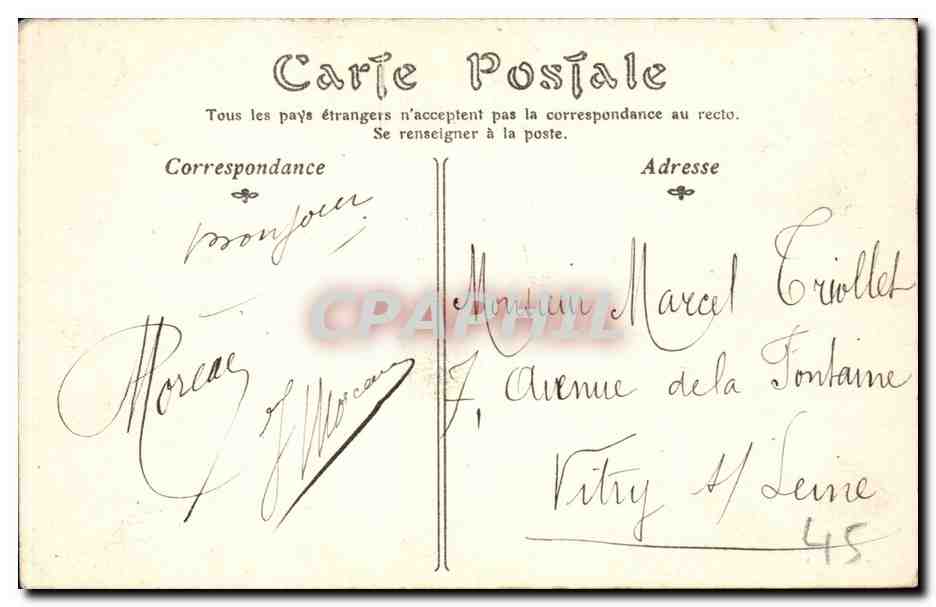 Carte Postale
Tous les pays étrangers n'acceptent pas la correspondance au recto.
Se renseigner à la poste.
Correspondance
Adresse
Bonjour
Moreau
J Moreau
Monsieur Marcel Triollet
7, Avenue de la Fontaine
Vitry s/ Seine
45
CPAPHIL